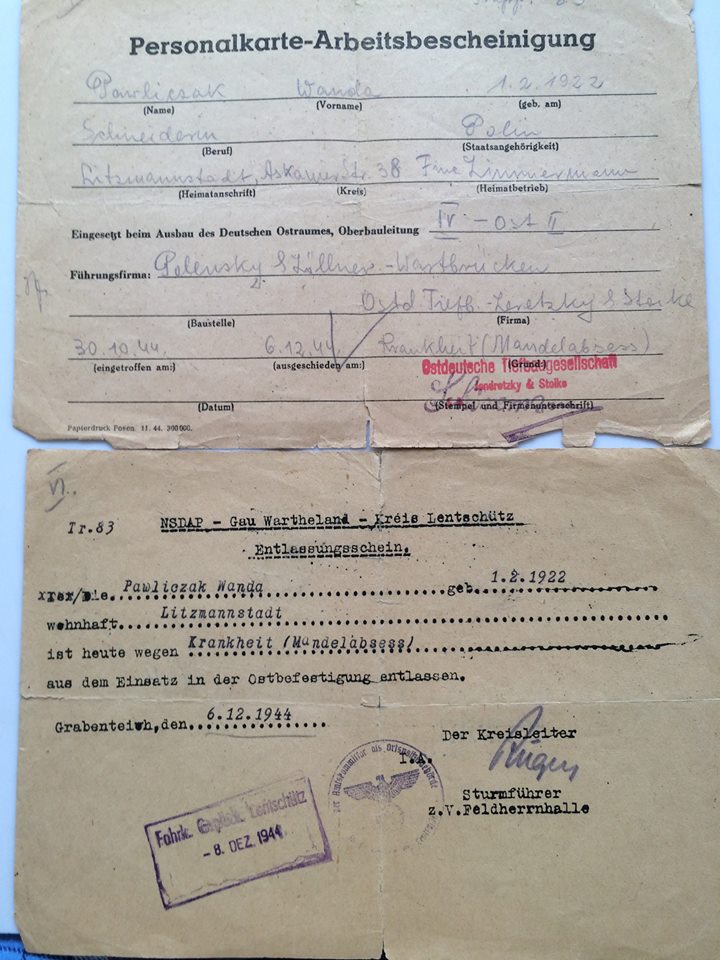 Personalkarte-Arbeitsbescheinigung
Pawliczak Wanda 1.2.1922
(Name) (Vorname) (geb. am)
Schneiderin Polin
(Beruf) (Staatsangehörigkeit)
Litzmannstadt, Str. 38 Zimmermann
(Heimatanschrift) (Kreis) (Heimatbetrieb)
Eingesetzt beim Ausbau des Deutschen Ostraumes, Oberbauleitung IV - Ost II
Führungsfirma: Polensky & Zöllner - Wartbrücken
Ostd. Tiefb.
(Baustelle) (Firma)
30.10.44. 6.12.44. Krankheit (Mandelabsess)
(eingetroffen am:) (ausgeschieden am:) (Grund:)
Ostdeutsche Tiefbaugesellschaft
(Datum) (Stempel und Firmenunterschrift)
Papierdruck Posen. 11. 44. 300000.
VI.
Tr.83 NSDAP - Gau Wartheland - Kreis Lentschütz
Entlassungsschein.
xxx/Die. Pawliczak Wanda geb. 1.2.1922
wohnhaft Litzmannstadt
ist heute wegen Krankheit (Mandelabsess)
aus dem Einsatz in der Ostbefestigung entlassen.
Grabenteich, den 6.12.1944
Der Kreisleiter
I.A.
Sturmführer
z.V.Feldherrnhalle
Lentschütz
- 8. DEZ. 1944